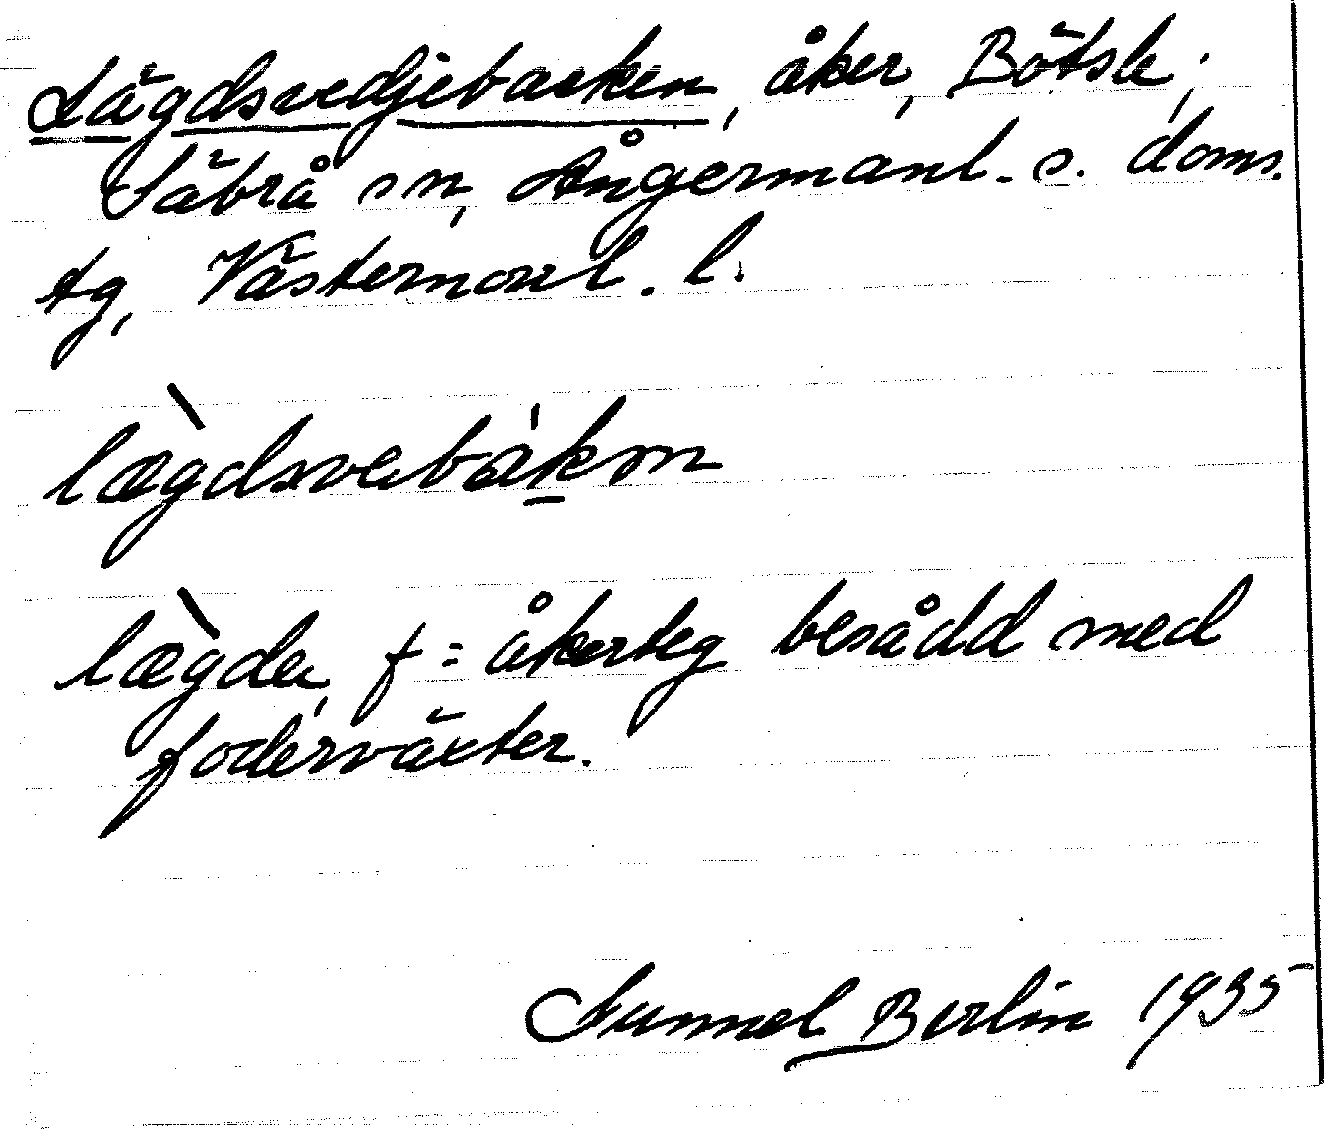 Lägdsvedjebacken, åker, Bötsle,
Säbrå sn, Ångermanl. s. doms.
tg, Västernorrl. l.
lægdsvebàkɷn
lægda, f = åkerteg besådd med
foderväxter.
Gunnel Berlin 1935